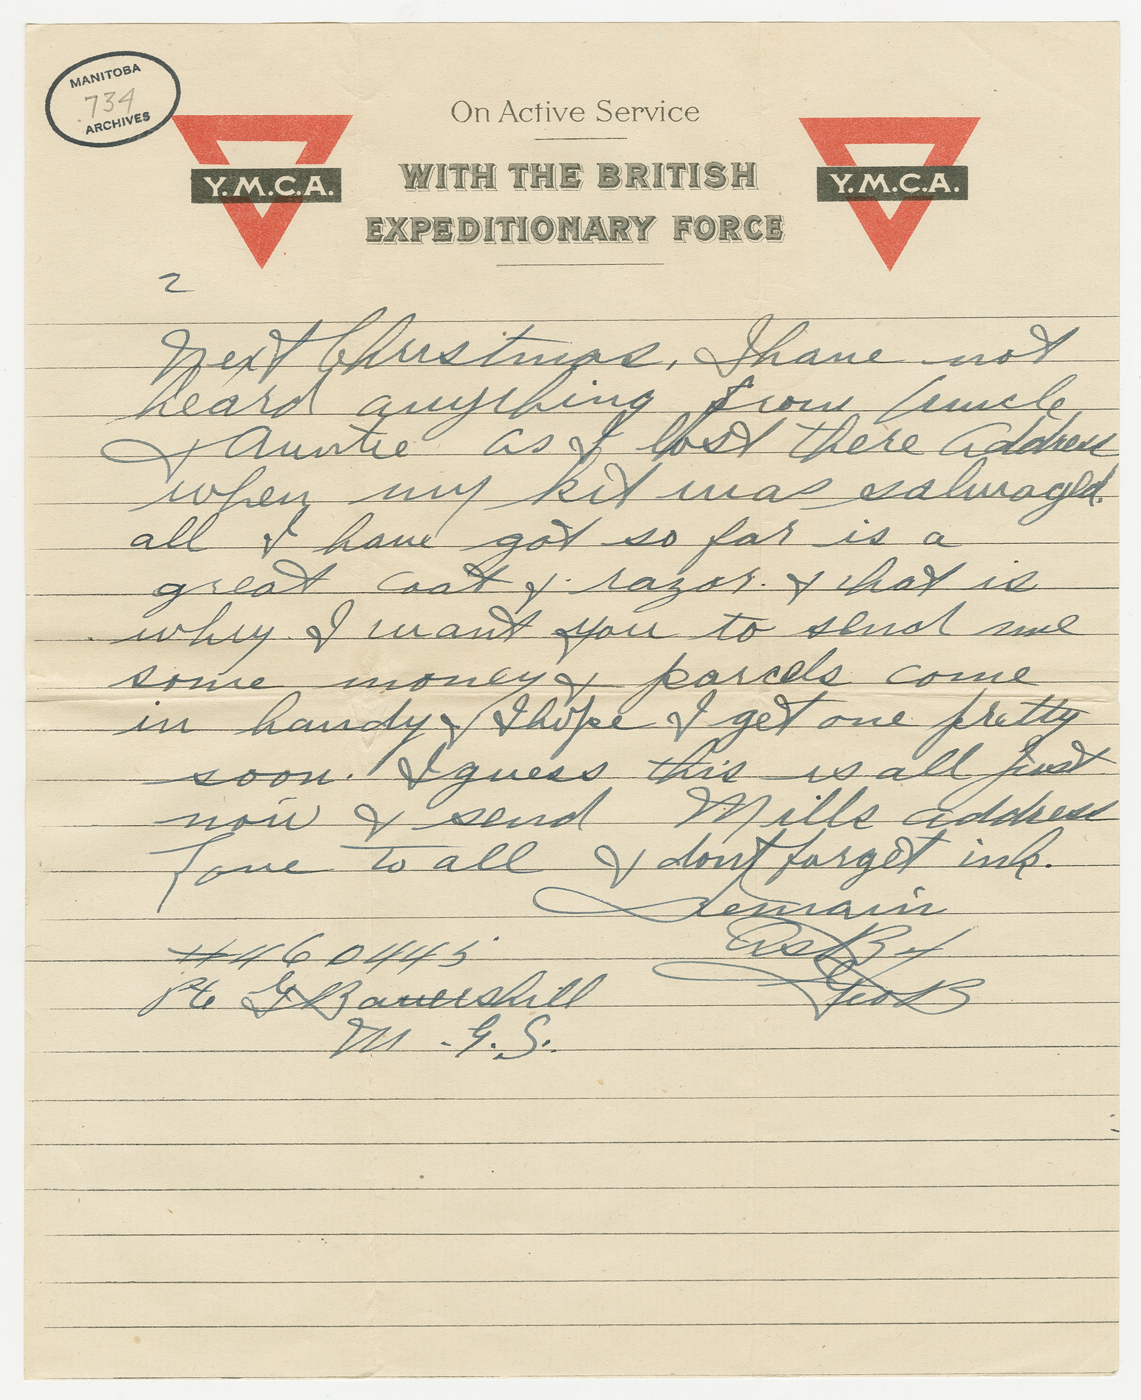 MANITOBA
734
ARCHIVES
On Active Service
WITH THE BRITISH
EXPEDITIONARY FORCE
Y.M.C.A.
Y.M.C.A.
2
Next Christmas, I have not
heard anything from Uncle
& Auntie as I lost there address
when my kit was salwaged.
all I have got so far is a
great coat & razor. & that is
why I want you to send me
some money & parcels come
in handy & I hope I get one pretty
soon. I guess this is all just
now & send Mills address
Love to all & dont forget ink.
Remain
As B4
Geo B
#460445
Pte G Battershill
M.G.S.